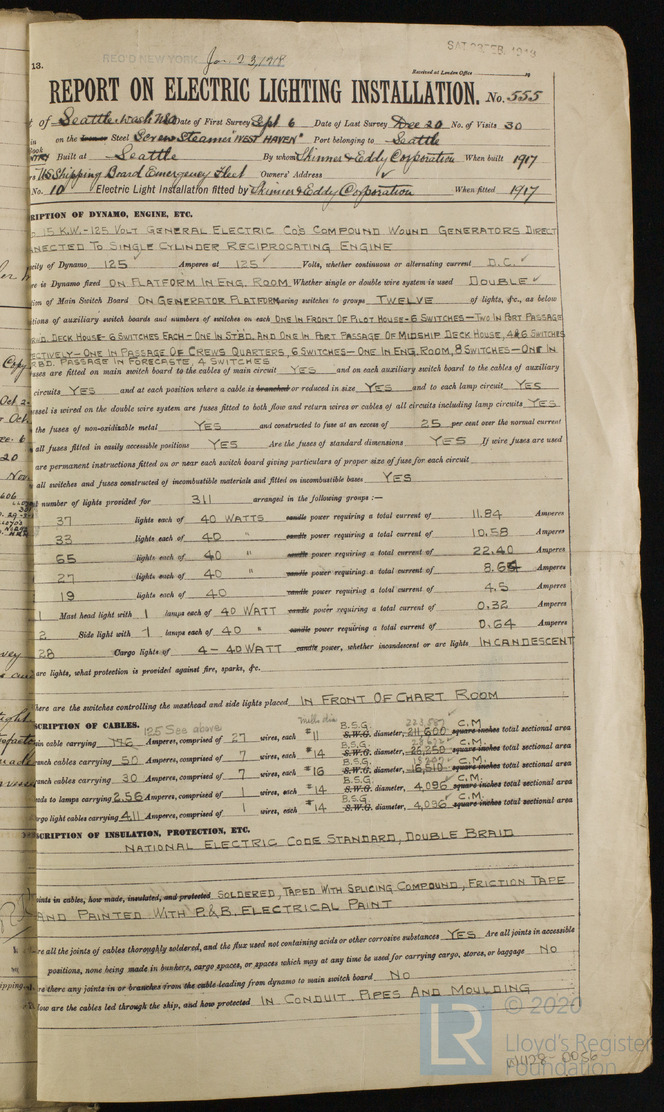 13.
REC'D NEW YORK Jan 23, 1918
SAT. 23 FEB. 1918
Received at London Office 19
REPORT ON ELECTRIC LIGHTING INSTALLATION. No. 555
t of Seattle Wash USA Date of First Survey Sept 6 Date of Last Survey Dec 20 No. of Visits 30
on the Iron or Steel Screw Steamer "WEST HAVEN" Port belonging to Seattle
Built at Seattle By whom Skinner & Eddy Corporation When built 1917
US Shipping Board Emergency Fleet Owners' Address
No. 10 Electric Light Installation fitted by Skinner & Eddy Corporation When fitted 1917
RIPTION OF DYNAMO, ENGINE, ETC.
15 K.W.-125 VOLT GENERAL ELECTRIC CO'S COMPOUND WOUND GENERATORS DIRECT
NNECTED TO SINGLE CYLINDER RECIPROCATING ENGINE
city of Dynamo 125 Amperes at 125 Volts, whether continuous or alternating current D.C.
re is Dynamo fixed ON PLATFORM IN ENG. ROOM Whether single or double wire system is used DOUBLE
tion of Main Switch Board ON GENERATOR PLATFORM having switches to groups TWELVE of lights, &c., as below
tions of auxiliary switch boards and numbers of switches on each ONE IN FRONT OF PILOT HOUSE-6 SWITCHES-TWO IN PORT PASSAGE
DECK HOUSE-6 SWITCHES EACH-ONE IN STBD. AND ONE IN PORT PASSAGE OF MIDSHIP DECK HOUSE, 4&6 SWITCHES
ECTIVELY-ONE IN PASSAGE OF CREWS QUARTERS, 6 SWITCHES-ONE IN ENG. ROOM, 8 SWITCHES-ONE IN
PASSAGE IN FORECASTE, 4 SWITCHES
uses are fitted on main switch board to the cables of main circuit YES and on each auxiliary switch board to the cables of auxiliary
circuits YES and at each position where a cable is branched or reduced in size YES and to each lamp circuit YES
vessel is wired on the double wire system are fuses fitted to both flow and return wires or cables of all circuits including lamp circuits YES
the fuses of non-oxidizable metal YES and constructed to fuse at an excess of 25 per cent over the normal current
all fuses fitted in easily accessible positions YES Are the fuses of standard dimensions YES If wire fuses are used
are permanent instructions fitted on or near each switch board giving particulars of proper size of fuse for each circuit
all switches and fuses constructed of incombustible materials and fitted on incombustible bases YES
number of lights provided for 311 arranged in the following groups :—
37 lights each of 40 WATTS candle power requiring a total current of 11.84 Amperes
33 lights each of 40 " candle power requiring a total current of 10.58 Amperes
65 lights each of 40 " candle power requiring a total current of 22.40 Amperes
27 lights each of 40 " candle power requiring a total current of 8.64 Amperes
19 lights each of 40 candle power requiring a total current of 4.5 Amperes
1 Mast head light with 1 lamps each of 40 WATT candle power requiring a total current of 0.32 Amperes
2 Side light with 1 lamps each of 40 " candle power requiring a total current of 0.64 Amperes
28 Cargo lights of 4-40 WATT candle power, whether incandescent or arc lights INCANDESCENT
arc lights, what protection is provided against fire, sparks, &c.
here are the switches controlling the masthead and side lights placed IN FRONT OF CHART ROOM
SCRIPTION OF CABLES.
125 See above
ain cable carrying Amperes, comprised of 27 wires, each #11 B.S.G. S.W.G. diameter, 211,600 C.M. square inches total sectional area
ranch cables carrying 50 Amperes, comprised of 7 wires, each #14 B.S.G. S.W.G. diameter, 26,250 C.M. square inches total sectional area
ranch cables carrying 30 Amperes, comprised of 7 wires, each #16 B.S.G. S.W.G. diameter, 16,510 C.M. square inches total sectional area
eads to lamps carrying 2.56 Amperes, comprised of 1 wires, each #14 B.S.G. S.W.G. diameter, 4,096 C.M. square inches total sectional area
argo light cables carrying 4.11 Amperes, comprised of 1 wires, each #14 B.S.G. S.W.G. diameter, 4,096 C.M. square inches total sectional area
SCRIPTION OF INSULATION, PROTECTION, ETC.
NATIONAL ELECTRIC CODE STANDARD, DOUBLE BRAID
oints in cables, how made, insulated, and protected SOLDERED, TAPED WITH SPLICING COMPOUND, FRICTION TAPE
AND PAINTED WITH P.&B. ELECTRICAL PAINT
re all the joints of cables thoroughly soldered, and the flux used not containing acids or other corrosive substances YES Are all joints in accessible
positions, none being made in bunkers, cargo spaces, or spaces which may at any time be used for carrying cargo, stores, or baggage NO
re there any joints in or branches from the cable leading from dynamo to main switch board NO
How are the cables led through the ship, and how protected IN CONDUIT PIPES AND MOULDING
© 2020
LR
Lloyd's Register
Foundation
W428-0056